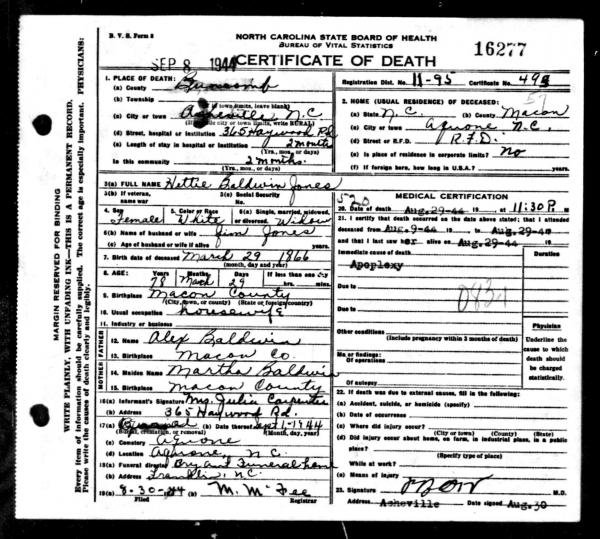 B. V. S. Form 8
NORTH CAROLINA STATE BOARD OF HEALTH
BUREAU OF VITAL STATISTICS
SEP 8 1944 CERTIFICATE OF DEATH
16277
Registration Dist. No. 11-95 Certificate No. 493
MARGIN RESERVED FOR BINDING
WRITE PLAINLY, WITH UNFADING INK—THIS IS A PERMANENT RECORD. PHYSICIANS:
Every item of information should be carefully supplied. The correct age is especially important.
Please write the causes of death clearly and legibly.
1. PLACE OF DEATH:
(a) County Buncomb
(b) Township
(If town limits, leave blank)
(c) City or town Asheville, N.C.
(If outside city or town limits, write RURAL)
(d) Street, hospital or institution 365 Haywood Rd
(e) Length of stay in hospital or institution 2 months
(Yrs., mos., or days)
In this community 2 months.
(Yrs., mos. or days)
2. HOME (USUAL RESIDENCE) OF DECEASED:
57
(a) State N. C. (b) County Macon
(c) City or town Aquone N.C.
(d) Street or R.F.D. R.F.D.
(e) Is place of residence in corporate limits? No
(f) If foreign born, how long in U.S.A.? years.
3(a) FULL NAME Hettie Baldwin Jones
3(b) If veteran, name war
3(c) Social Security No.
4. Sex Female
5. Color or Race White
6(a) Single, married, widowed, or divorced Widow
6(b) Name of husband or wife Jim Jones
(c) Age of husband or wife if alive years.
7. Birth date of deceased March 29 1866
(month, day and year)
8. AGE: Years 78 Months Mach Days 29 If less than one day hrs. min.
9. Birthplace Macon County
(City, town, or county) (State or foreign country)
10. Usual occupation housewife
11. Industry or business
FATHER
12. Name Alex Baldwin
13. Birthplace Macon Co.
MOTHER
14. Maiden Name Martha Baldwin
15. Birthplace Macon County
16(a) Informant's Signature Mrs. Julia Carpenter
(b) Address 365 Haywood Rd.
17(a) (b) Date thereof Sept 1-1944
(Burial, cremation, or removal) (Month, day, year)
(c) Cemetery Aquone
(d) Location Aquone, N.C.
18(a) Funeral director Bryant Funeral home
(b) Address Franklin, N.C.
19(a) 8-30-44 M. McFee
Filed Registrar
MEDICAL CERTIFICATION
520
20. Date of death Aug. 29-44 19 at 11:30P. M
21. I certify that death occurred on the date above stated; that I attended
deceased from Aug. 9-44 19 to Aug. 29-44
and that I last saw her alive on Aug. 29-44 19
Immediate cause of death
Duration
Apoplexy
Due to
083
Due to
Other conditions
(Include pregnancy within 3 months of death)
Ma or findings:
Of operations
Of autopsy
Physician
Underline
the cause
to which
death
should be
charged
statistically
22. If death was due to external causes, fill in the following:
(a) Accident, suicide, or homicide (specify)
(b) Date of occurrence
(c) Where did injury occur?
(City or town) (County) (State)
(d) Did injury occur about home, on farm, in industrial place, in a public
place?
(Specify type of place)
While at work?
(e) Means of injury
23. Signature M.D.
Address Asheville Date signed Aug. 30